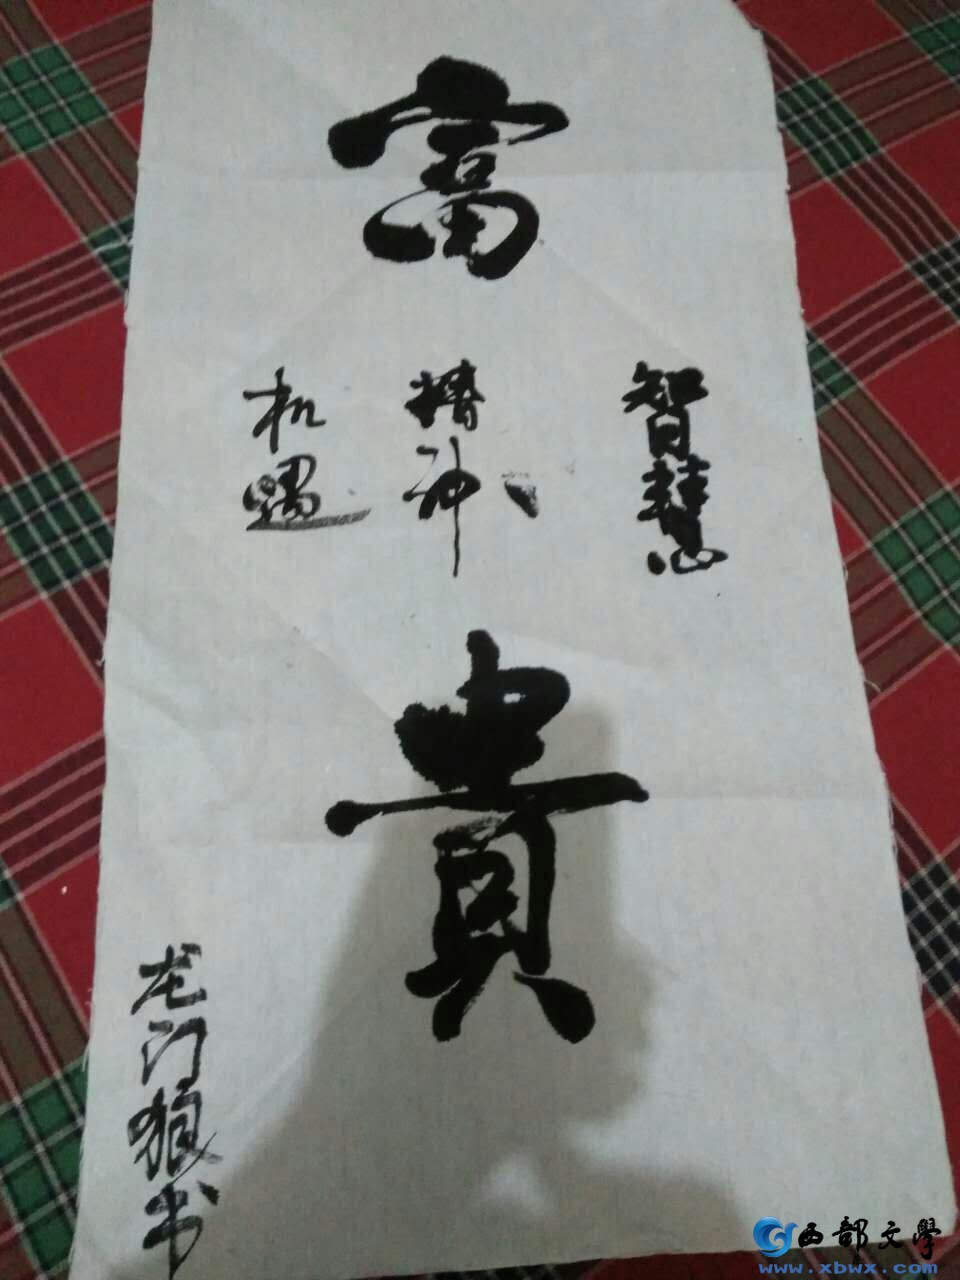 富
智慧
精神
机遇
貴
龙门狼书
西部文學
www.xbwx.com